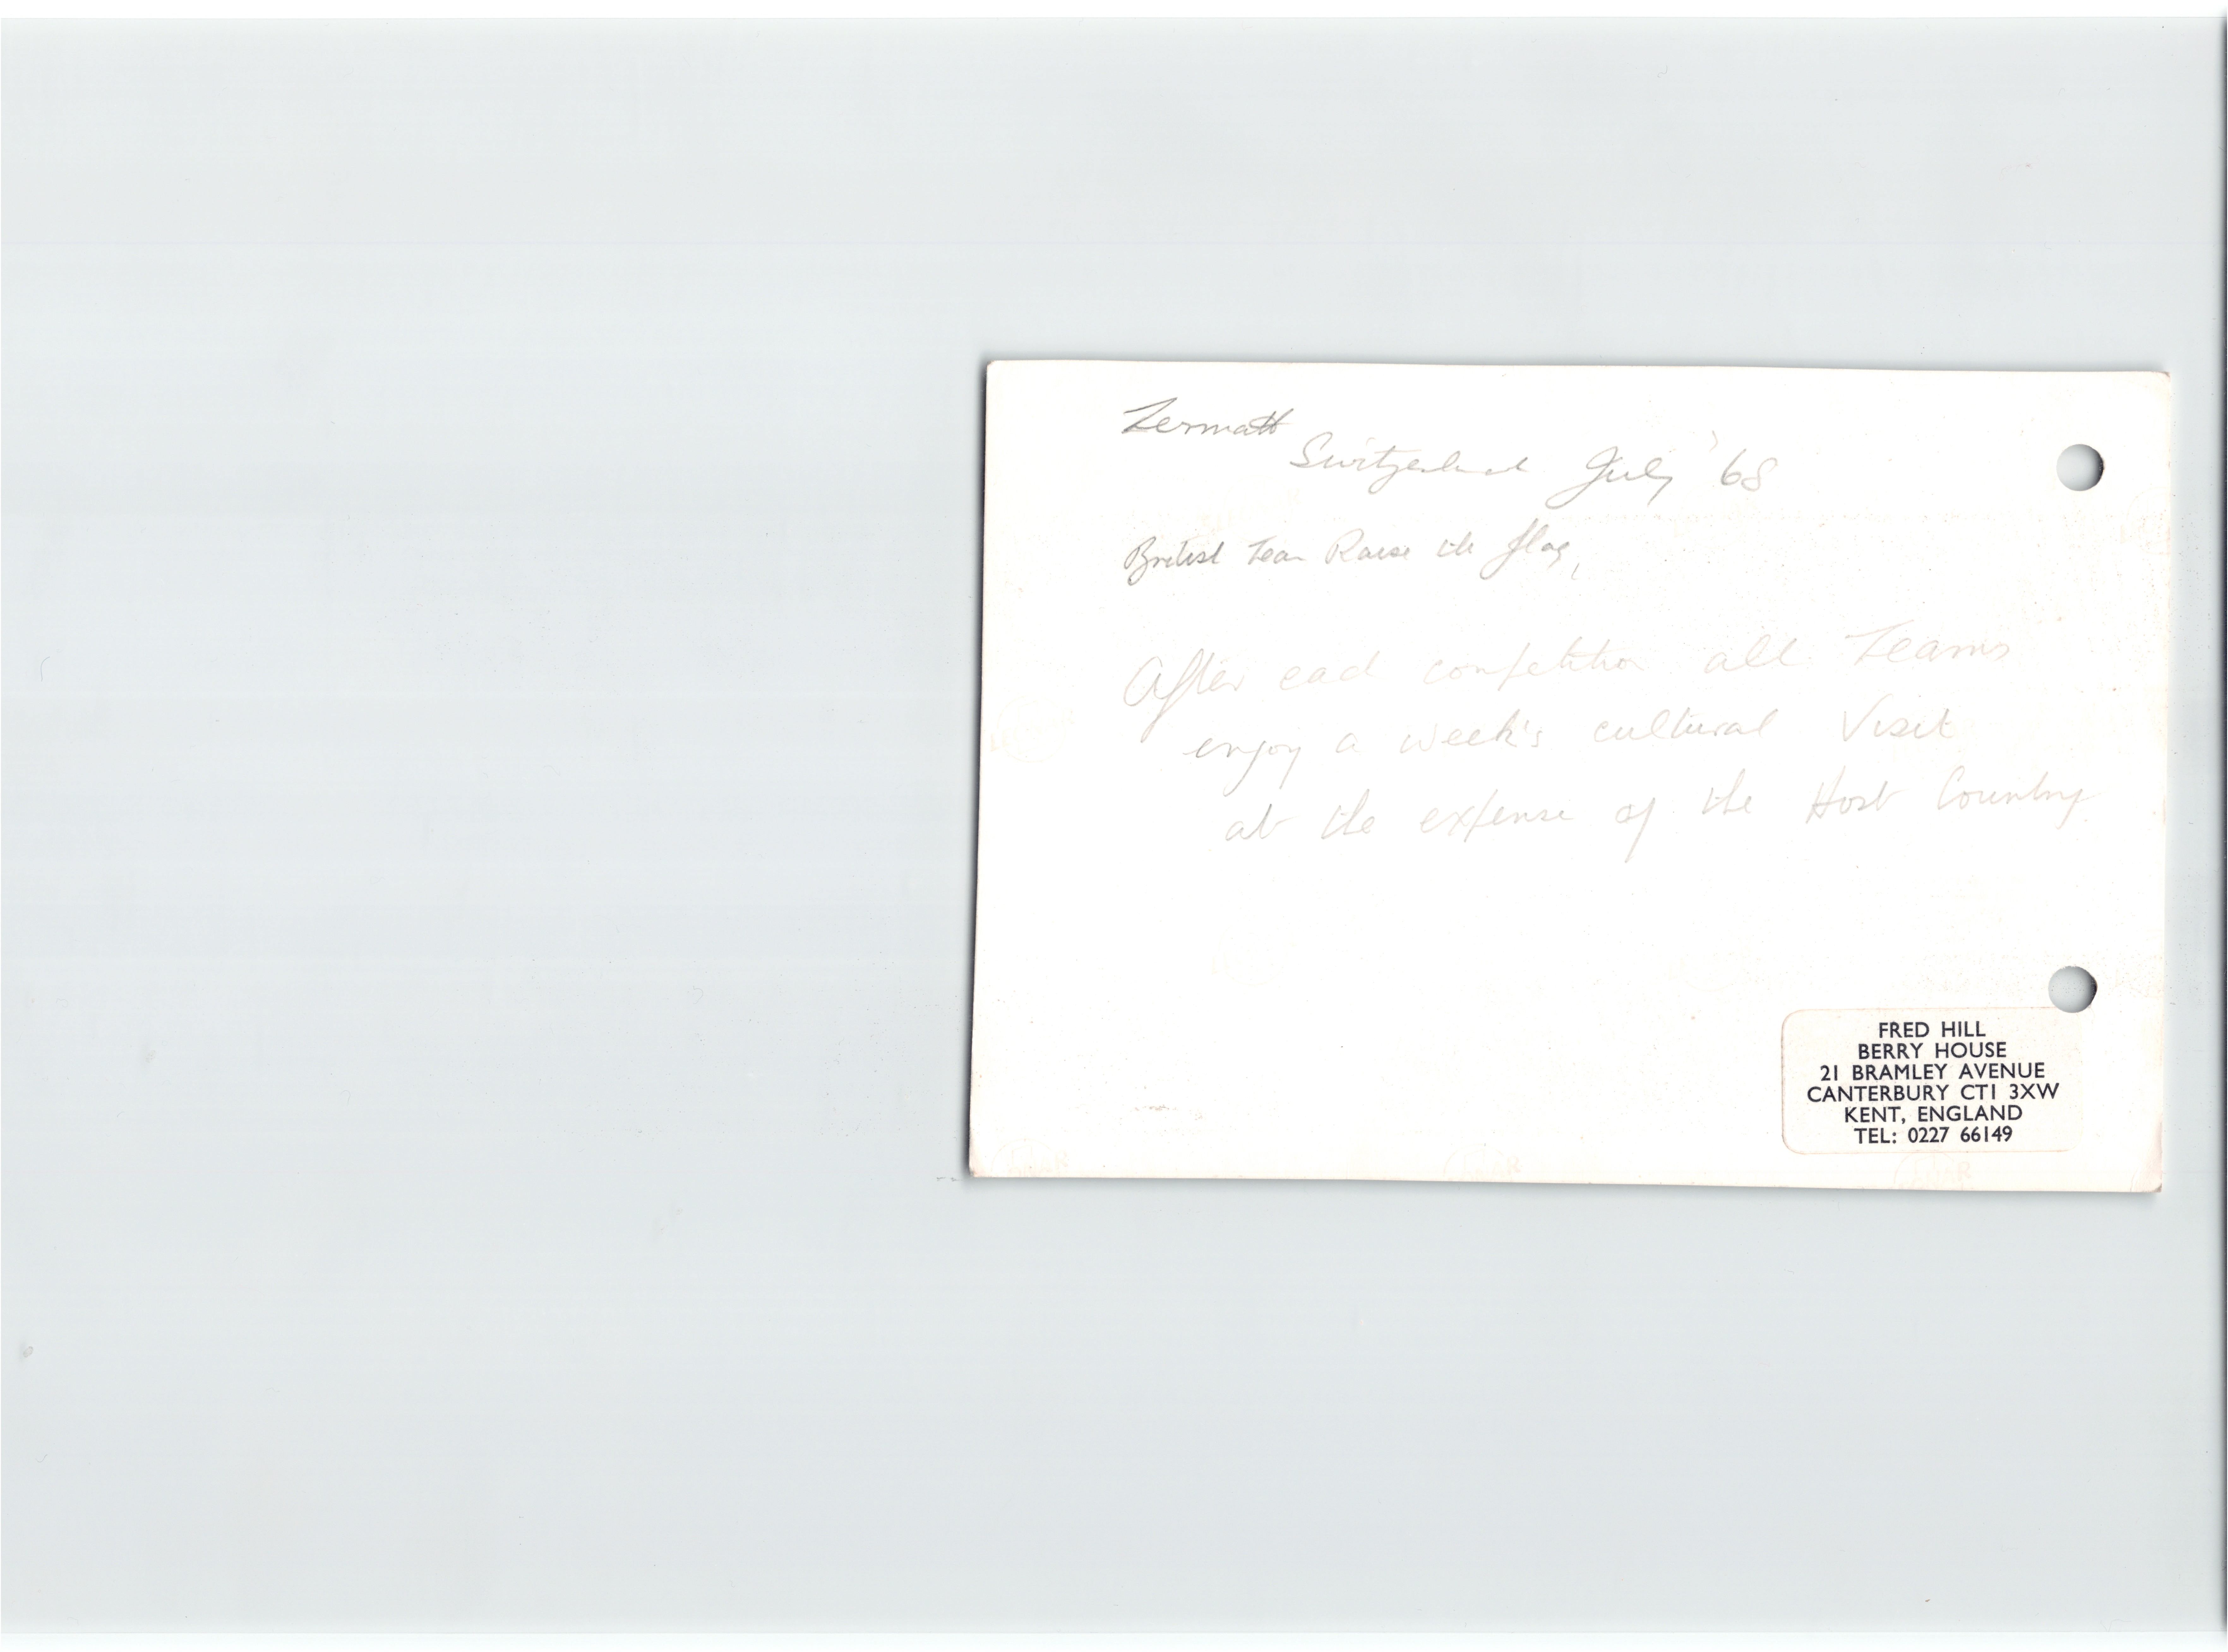 Zermatt
Switzerland July '68
British Team Raise the flag,
After each competition all Teams
enjoy a week's cultural Visit
at the expense of the Host Country
FRED HILL
BERRY HOUSE
21 BRAMLEY AVENUE
CANTERBURY CT1 3XW
KENT, ENGLAND
TEL: 0227 66149